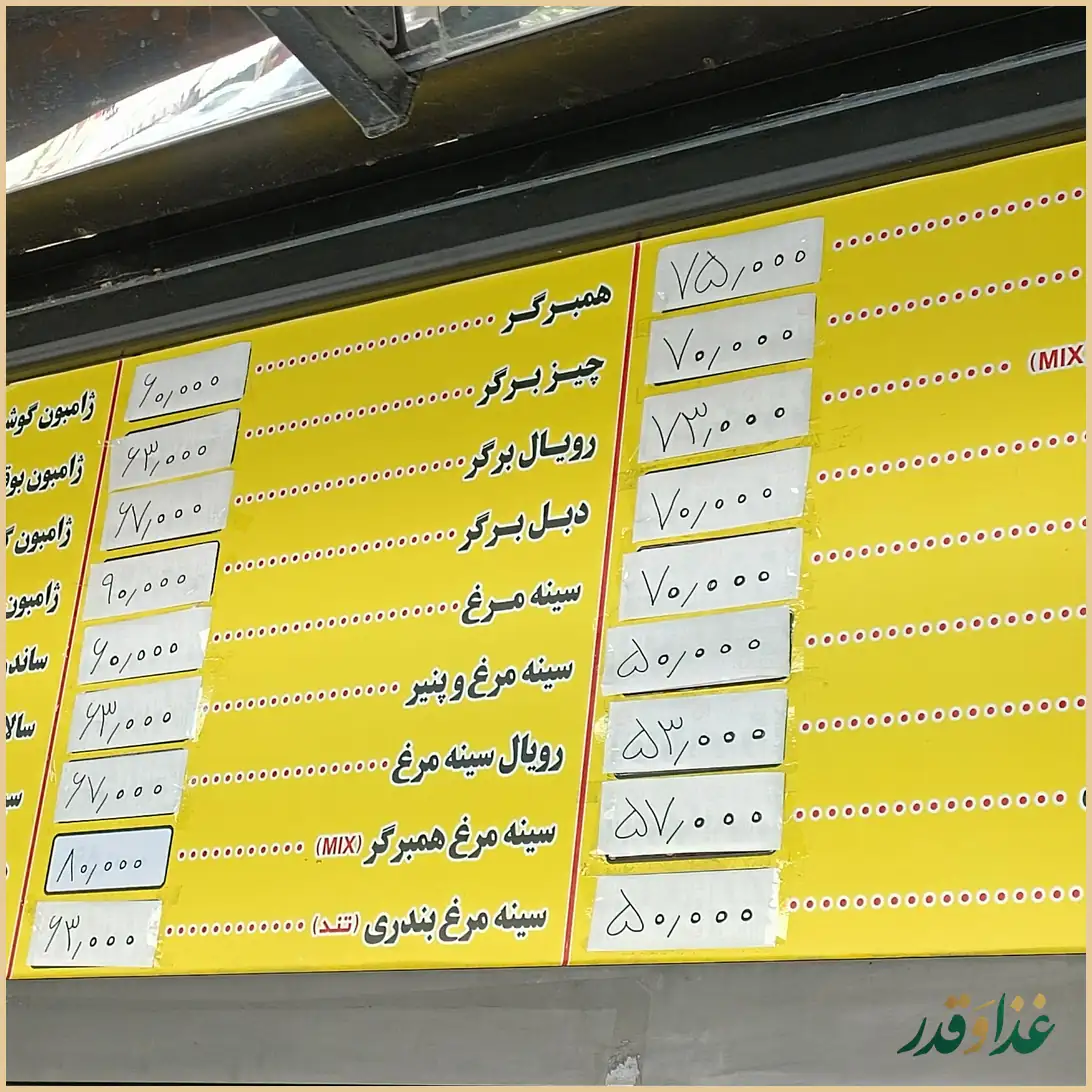 ۷۵٫۰۰۰
۷۰٫۰۰۰
(MIX
۷۳٫۰۰۰
۷۰٫۰۰۰
۷۰٫۰۰۰
۵۰٫۰۰۰
۵۳٫۰۰۰
۵۷٫۰۰۰
۵۰٫۰۰۰
همبرگر ۶۰٫۰۰۰
چیز برگر ۶۳٫۰۰۰
رویال برگر ۶۷٫۰۰۰
دبل برگر ۹۰٫۰۰۰
سینه مرغ ۶۰٫۰۰۰
سینه مرغ و پنیر ۶۳٫۰۰۰
رویال سینه مرغ ۶۷٫۰۰۰
سینه مرغ همبرگر (MIX) ۸۰٫۰۰۰
سینه مرغ بندری (تند) ۶۳٫۰۰۰
ژامبون
ژامبون
ژامبون
ژامبون
غذا و قدر